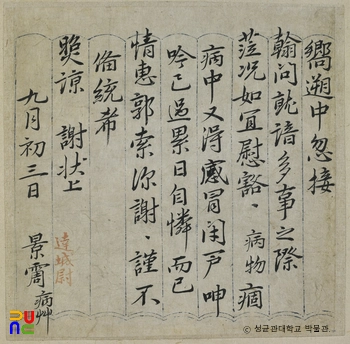 嚮朔中忽接
翰問就諳多事之際
莅況如宜慰豁〻病物痼
病中又得感冒閉戶呻
吟已過累日自憐而已
情惠郭索深謝〻謹不
備統希
照諒 謝狀上
九月初三日
景霌病艸
達城尉
© 성균관대학교 박물관